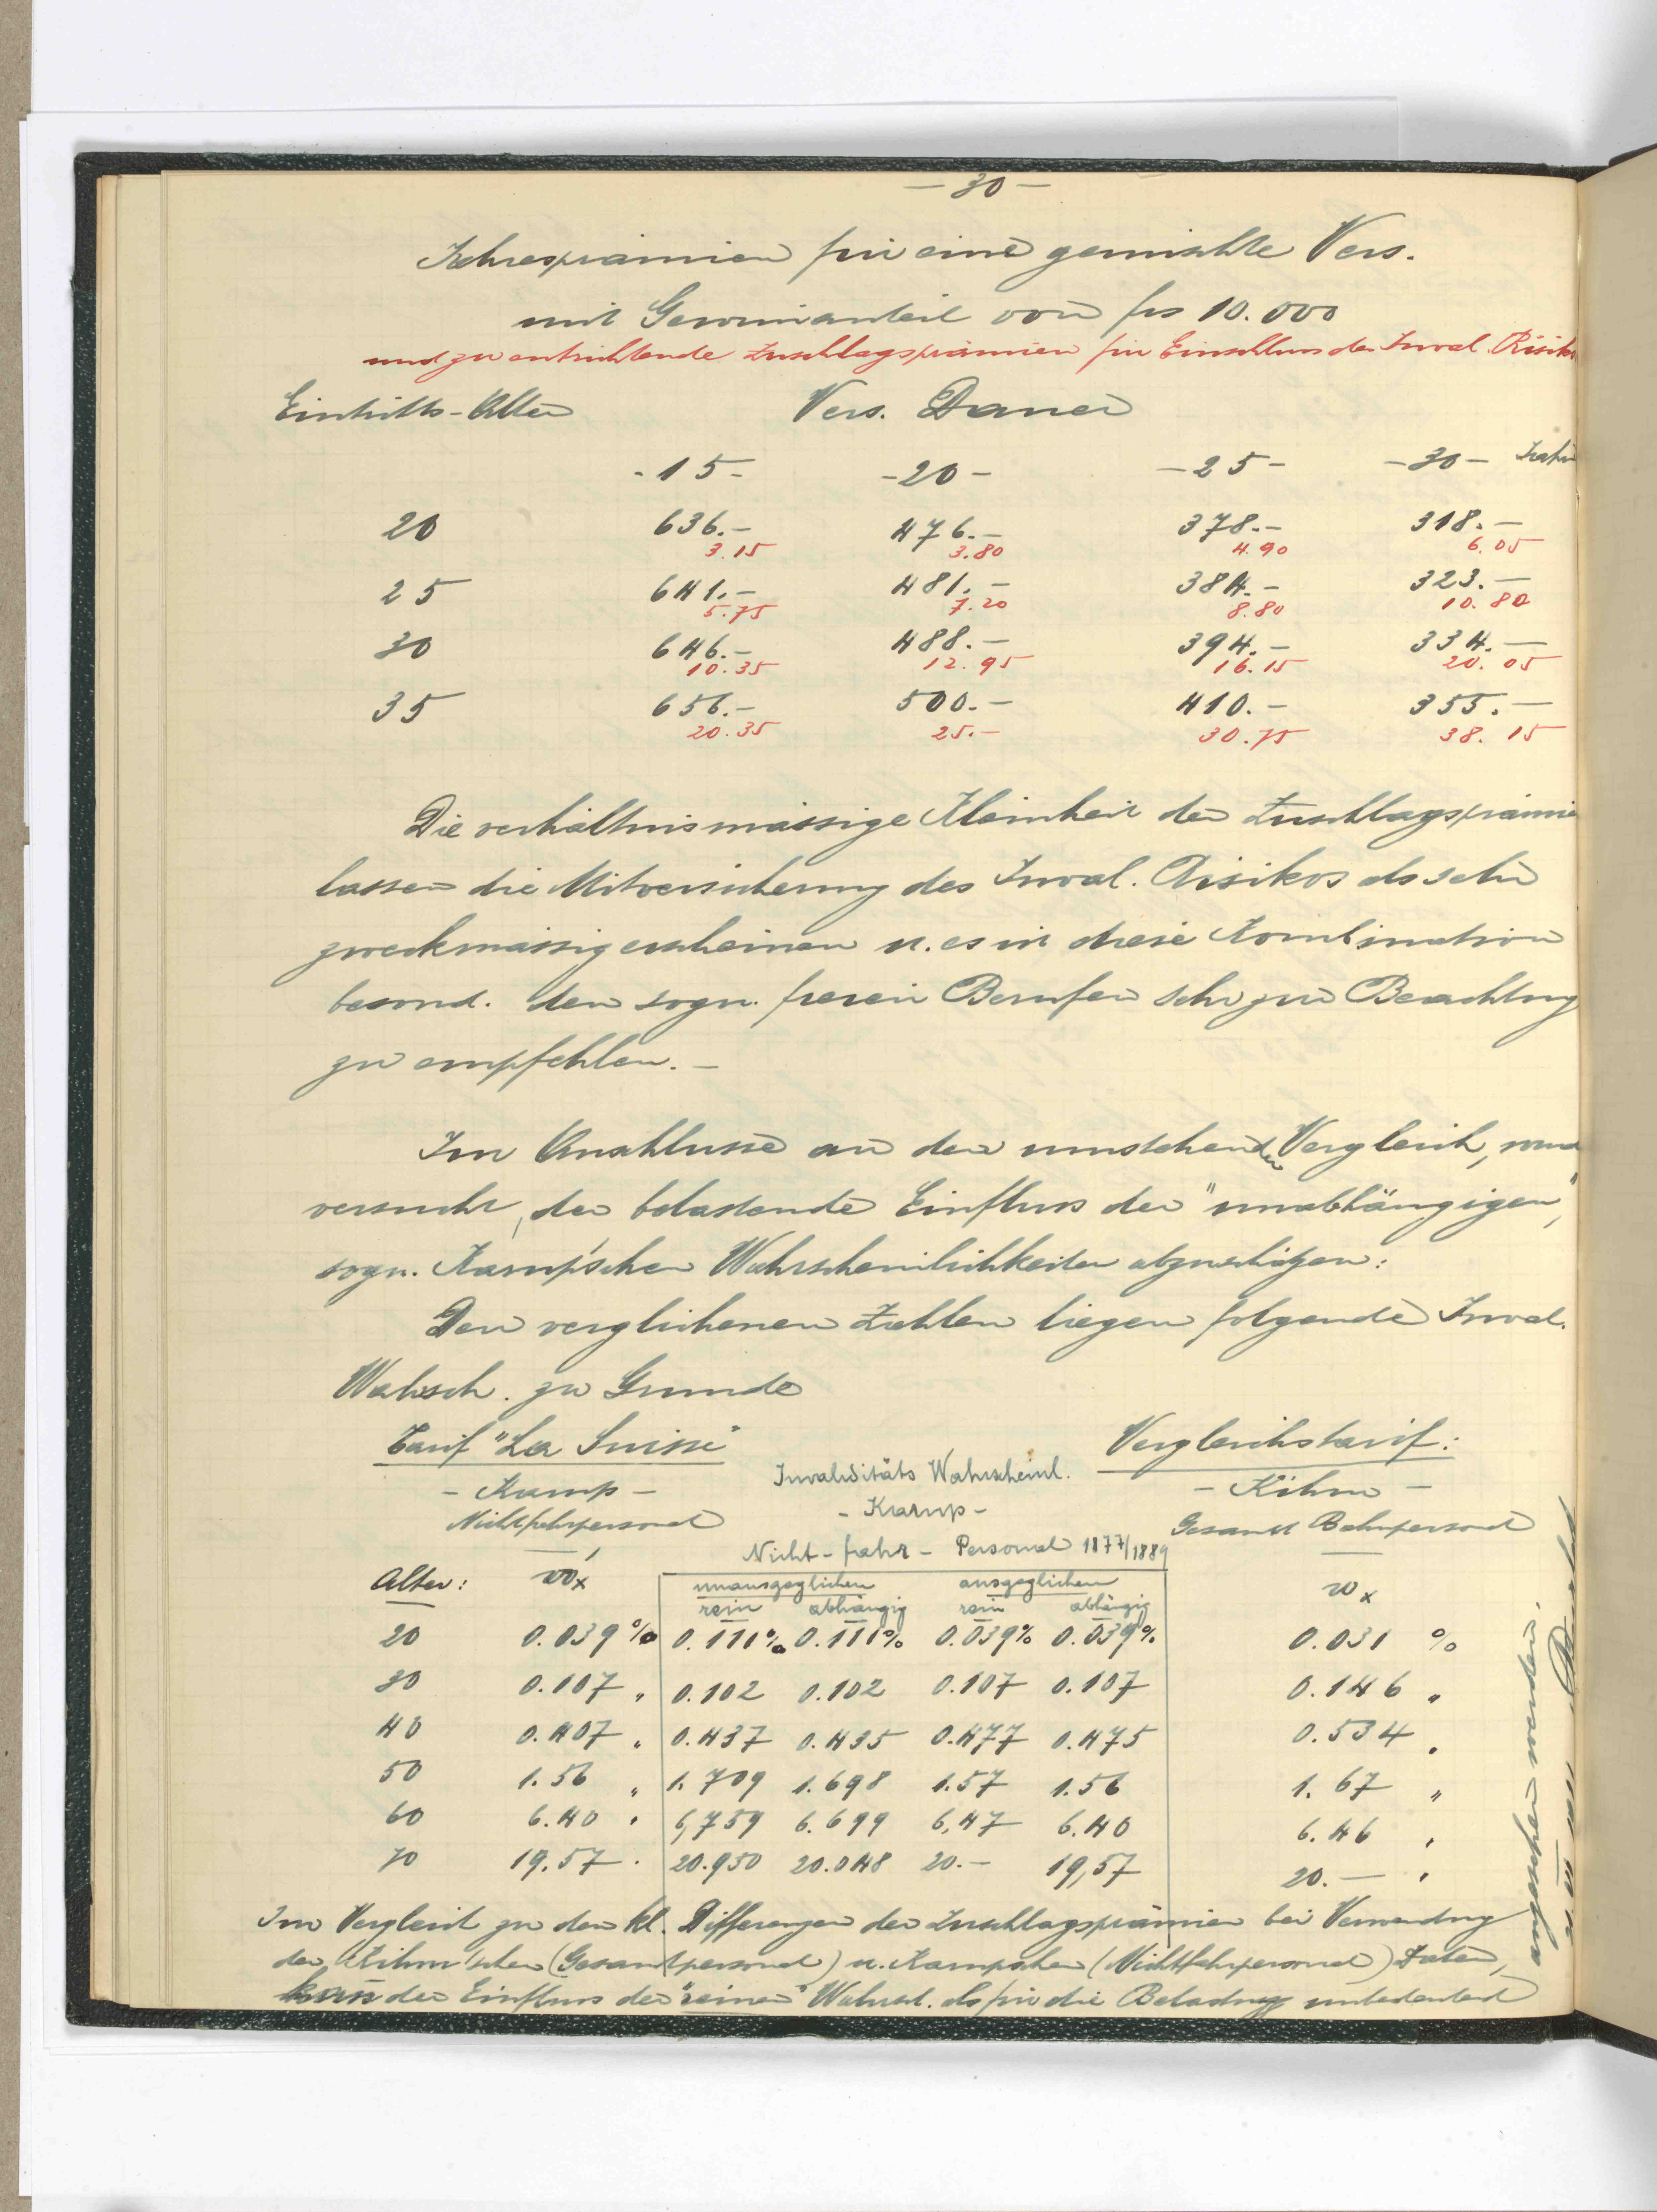 — 30 —
Jahresprämien für eine gemischte Vers.
mit Gewinnanteil von frs 10.000
und zu entrichtende Zuschlagsprämien für Einschluss des Inval. Risikos
Eintritts-Alter Vers. Dauer
- 15 - - 20 - - 25 - - 30 - Jahre
20 636.- 476.- 378.- 318.-
3.15 3.80 4.90 6.05
25 641.- 481.- 384.- 323.-
5.75 7.20 8.80 10.80
30 646.- 488.- 394.- 334.-
10.35 12.95 16.15 20.05
35 656.- 500.- 410.- 355.-
20.35 25.- 30.75 38.15
Die verhältnismässige Kleinheit der Zuschlagsprämie
lassen die Mitversicherung des Inval. Risikos als sehr
zweckmässig erscheinen u. es ist diese Kombination
besond. den sogn. freien Berufen sehr zur Beachtung
zu empfehlen. -
Im Anschlusse an den umstehenden Vergleich, wurde
versucht, der belastende Einfluss der "unabhängigen",
sogn. Karup'schen Wahrscheinlichkeiten abzuschätzen:
Den verglichenen Zahlen liegen folgende Inval.
Wahsch. zu Grunde
Tarif "La Suisse" Vergleichstarif:
- Karup - Invaliditäts Wahrscheinl. - Kihm -
Nichtfahrpersonal - Karup - Gesamt Bahnpersonal
Nicht-fahr-Personal 1877/1889
Alter: w'x unausgeglichen ausgeglichen wx
rein abhängig rein abhängig
20 0.039 % 0.111% 0.111% 0.039% 0.039% 0.031 %
30 0.107 " 0.102 0.102 0.107 0.107 0.146 "
40 0.407 " 0.437 0.435 0.477 0.475 0.534 "
50 1.56 " 1.709 1.698 1.57 1.56 1.67 "
60 6.40 " 6,759 6.699 6,47 6.40 6.46 "
70 19.57 " 20.950 20.048 20.- 19,57 20.- "
Im Vergleich zu den kl. Differenzen der Zuschlagsprämien bei Verwendung
der Kihm'schen (Gesamtpersonal) u. Karupschen (Nichtfahrpersonal) Daten,
kann der Einfluss der "reinen" Wahrsch. als für die Belastung unbedeutend
angesehen werden.